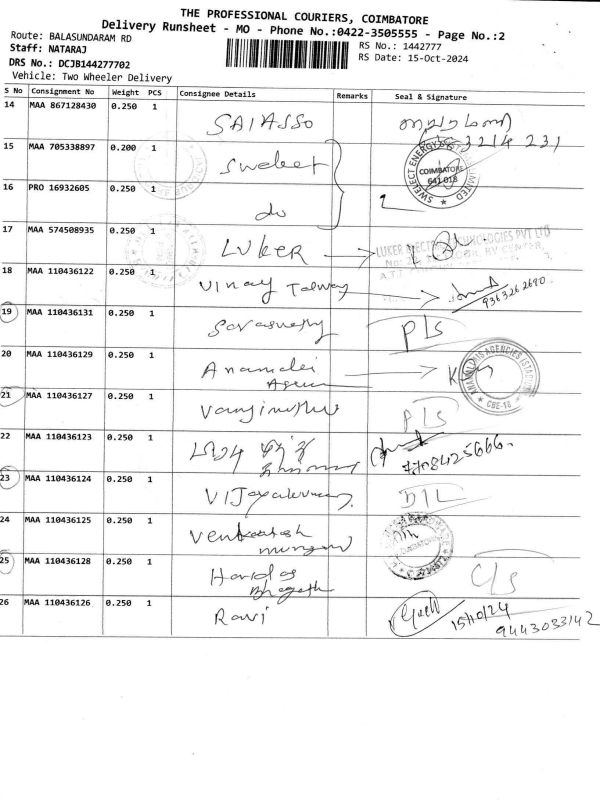 THE PROFESSIONAL COURIERS, COIMBATORE
Delivery Runsheet - MO - Phone No.:0422-3505555 - Page No.:2
Route: BALASUNDARAM RD
RS No.: 1442777
Staff: NATARAJ
RS Date: 15-Oct-2024
DRS No.: DCJB144277702
Vehicle: Two Wheeler Delivery
S No Consignment No Weight PCS Consignee Details Remarks Seal & Signature
14 MAA 867128430 0.250 1 SAIASSO
3214 231
15 MAA 705338897 0.200 1 Swelect
SWELECT ENERGY LIMITED COIMBATORE 641 018
16 PRO 16932605 0.250 1 do
17 MAA 574508935 0.250 1 LUKER
LUKER ELECTRIC TECHNOLOGIES PVT LTD
18 MAA 110436122 0.250 1 Vinay Talwar
9363262690
19 MAA 110436131 0.250 1 Saraswathy P/S
20 MAA 110436129 0.250 1 Anamalai
AGENCIES CBE-18
21 MAA 110436127 0.250 1 P/S
22 MAA 110436123 0.250 1
8425666
23 MAA 110436124 0.250 1 D/L
24 MAA 110436125 0.250 1 Venkatesh
murugan
25 MAA 110436128 0.250 1 Haridas C/S
26 MAA 110436126 0.250 1 Ravi 15/10/24
9443033142